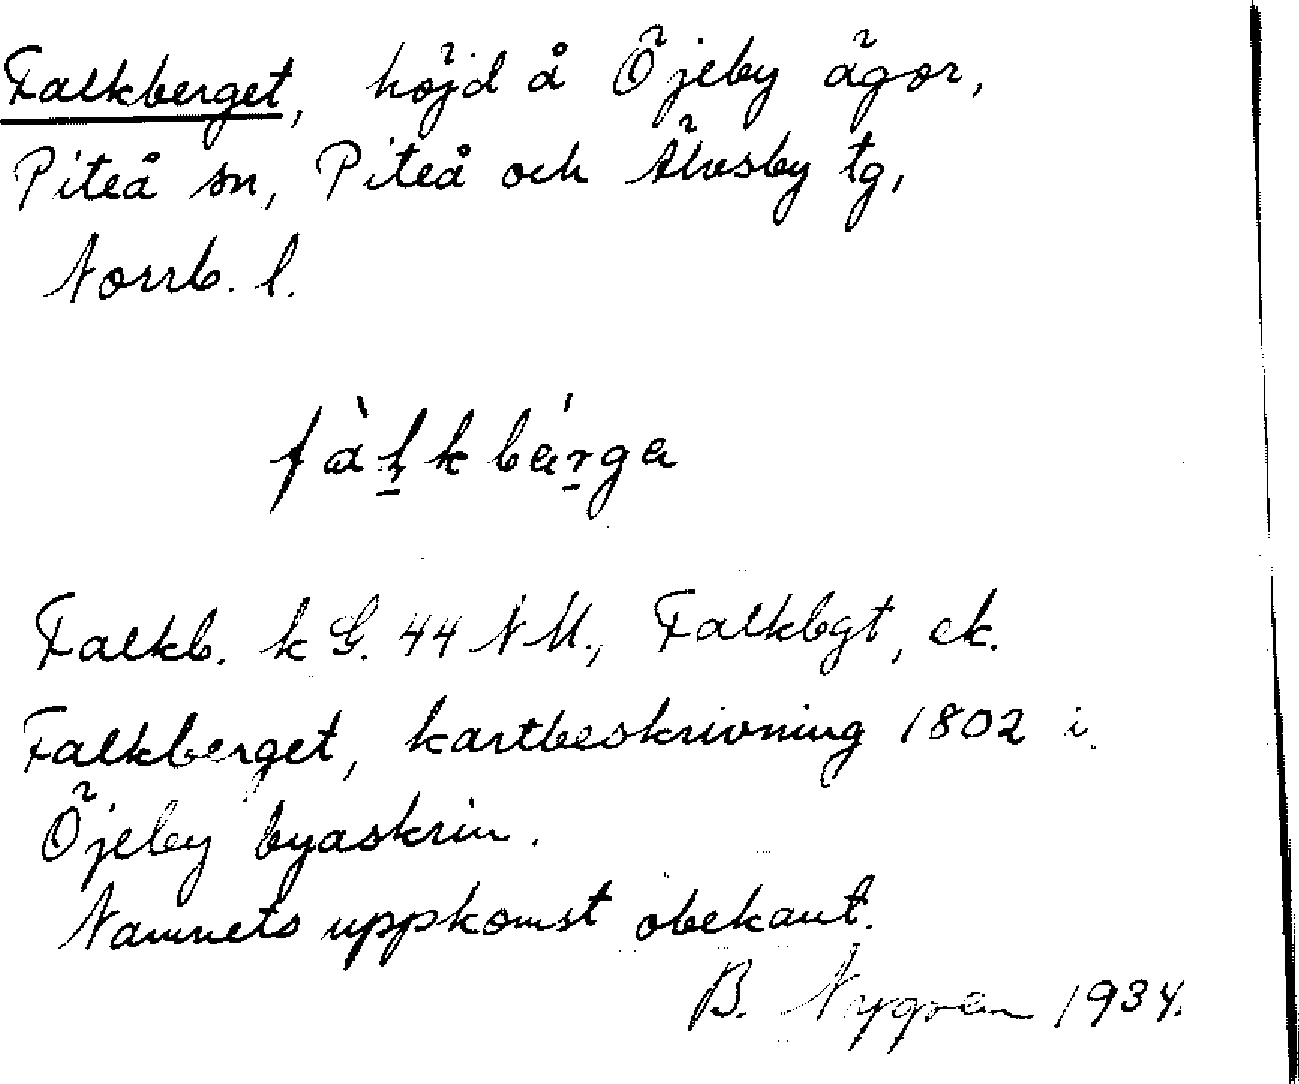 Falkberget, höjd å Öjeby ägor,
Piteå sn, Piteå och Älvsby tg,
Norrb. l.
fàḻkbárga
Falkb. k G. 44 N M., Falkbgt, ek.
Falkberget, kartbeskrivning 1802 i
Öjeby byaskrin.
Namnets uppkomst obekant.
B. Nygren 1934.